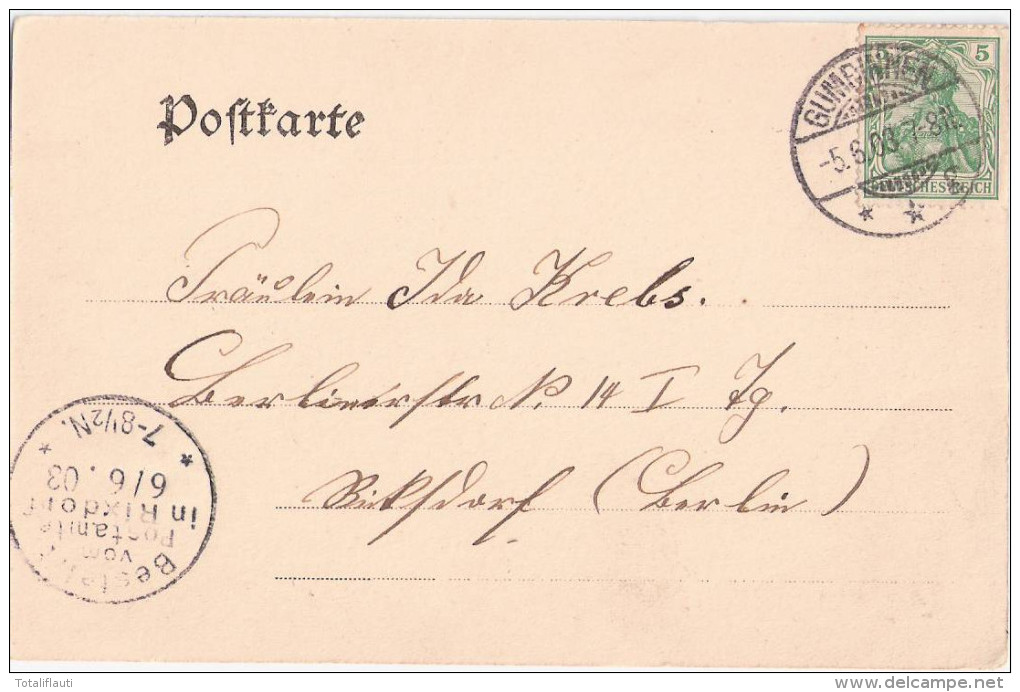 Postkarte
5
GUMBINNEN
-5.6.03.7-8N.
* * c
DEUTSCHES REICH
Fräulein Ida Krebs.
Berlinerstr N. 14 I Tg.
Riksdorf (Berlin)
Bestellt
vom
Postamte
in Rixdorf
6/6.03
* 7-8½N. *
Totaliflauti
delcampe.net